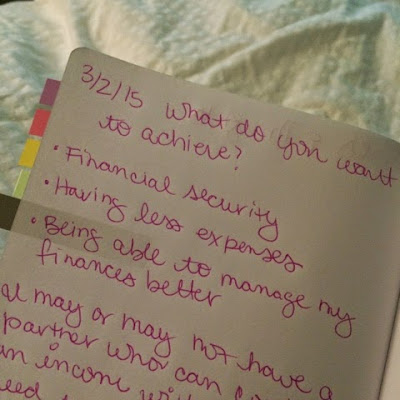 3/2/15 What do you want
to achieve?
• Financial security
• Having less expenses
• Being able to manage my
finances better
may or may not have a
partner who can
income